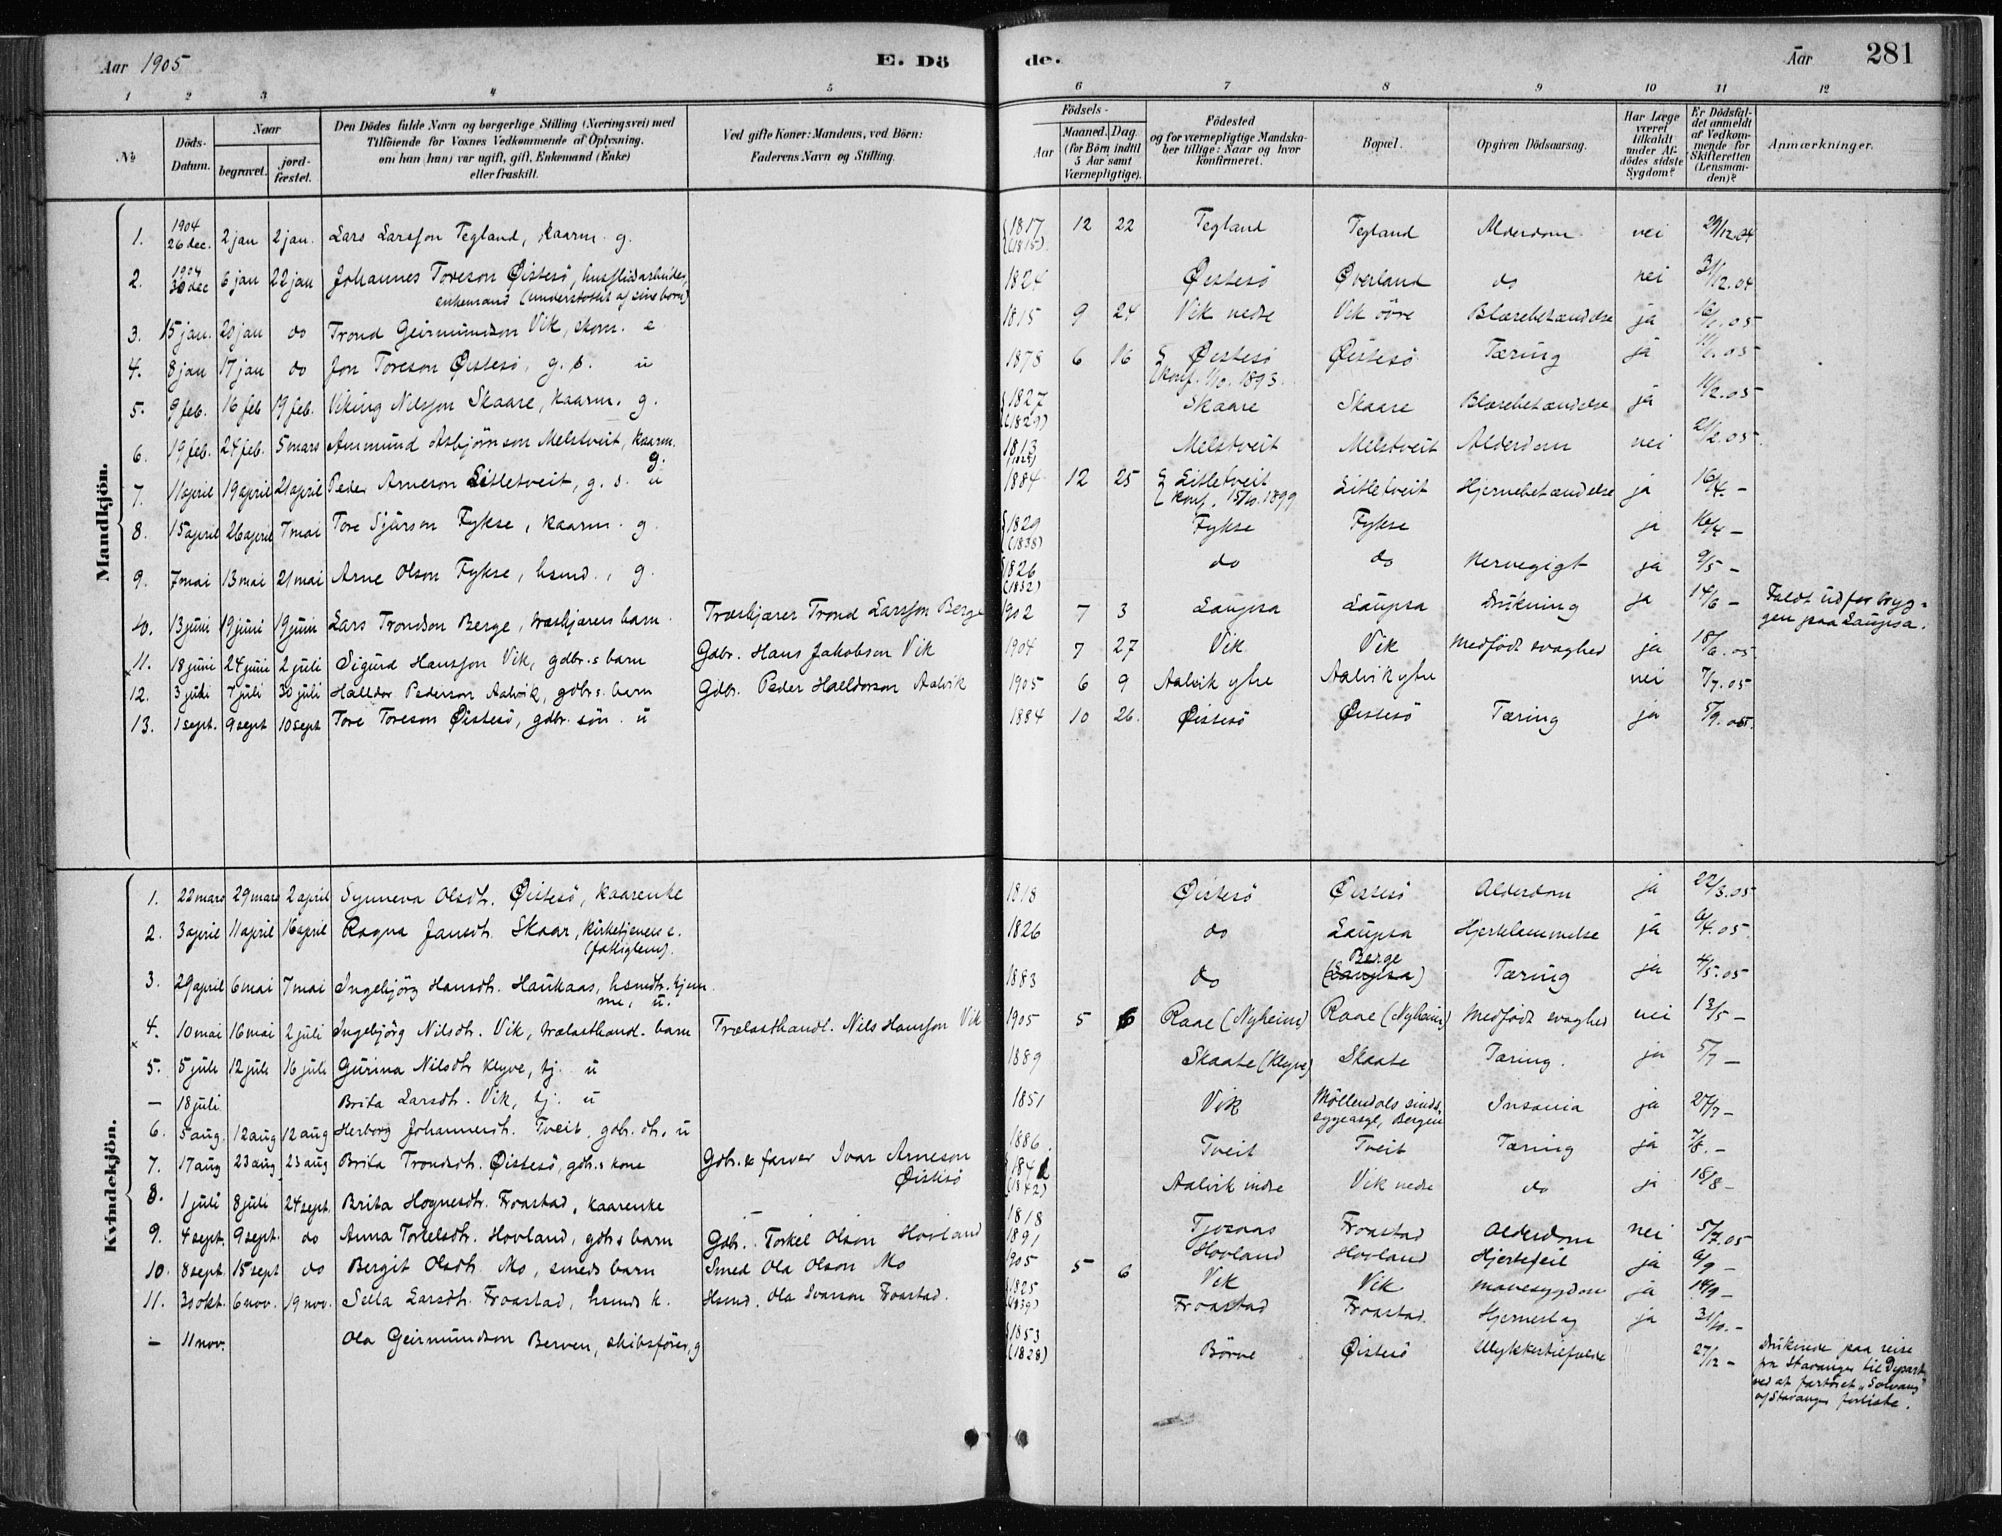 Aar 1905
E. Dö
de.
Aar
281
1 2 3 4 5 6 7 8 9 10 11 12
No
Döds-Datum.
Naar
begravet.
jordfæstet.
Den Dödes fulde Navn og borgerlige Stilling (Næringsvei) med
Tilföiende for Voxnes Vedkommende af Oplysning,
om han (hun) var ugift, gift, Enkemand (Enke)
eller fraskilt.
Ved gifte Koner: Mandens, ved Börn:
Faderens Navn og Stilling.
Födsels-
Aar
Maaned. Dag.
(for Börn indtil
5 Aar samt
Værnepligtige).
Födested
og for værnepligtige Mandska-
ber tillige: Naar og hvor
konfirmeret.
Bopæl.
Opgiven Dödsaarsag.
Har Læge
været
tilkaldt
under Af-
dödes sidste
Sygdom?
Er Dödsfal-
det anmeldt
af Vedkom-
mende for
Skifteretten
(Lensman-
den)?
Anmærkninger.
Mandkjön.
1. 1904 26 dec. 2 jan 2 jan. Lars Larsson Tegland, kaarm. g. 1817 (1815) 12 22 Tegland Tegland Alderdom nei 29/12.04
2. 1904 30 dec 6 jan 22 jan Johannes Toreson Øistesö, husflidsarbeider, 1824 Øistesö Øverland do nei 31/12.04
enkemand (understöttet af sine born)
3. 15 jan. 20 jan do Trond Geirmundson Vik, skom. e 1815 9 24 Vik nedre Vik övre Blærebetændelse ja 16/1.05
4. 8 jan 17 jan do Jon Toreson Øistesö, g. s. u 1878 6 16 Øistesö Øistesö Tæring ja 11/1.05
konf. 1/10. 1893.
5. 9 feb. 16 feb 19 feb. Viking Nilsson Skaare, kaarm. g. 1827 (1829) Skaare Skaare Blærebetændelse ja 11/2.05
6. 19 feb. 24 feb. 5 mars Ammund Asbjörnson Melstveit, kaarm. g. 1813 Melstveit Melstveit Alderdom nei 21/2.05
7. 11 april 19 april 21 april Peder Arneson Litletveit, g. s. u 1884 12 25 Litletveit Litletveit Hjernebetændelse ja 16/4. -
konf. 15/10. 1899
8. 15 april 26 april 7 mai Tore Sjurson Fykse, kaarm. g. 1829 (1838) Fykse Fykse ja 16/4 -
9. 7 mai 13 mai 21 mai Arne Olson Fykse, hsmd., g. 1826 (1832) do do Nervegigt ja 9/5 -
10. 13 juni 19 juni 19 juni Lars Trondson Berge, træskjærers barn. Træskjærer Trond Larsson Berge 1902 7 3 Laupsa Laupsa Drukning ja 14/6 - Faldt udfor bryg-
gen paa Laupsa.
11. 18 juni 24 juni 2 juli Sigurd Hansson Vik, gdbr.s barn Gdbr. Hans Jakobson Vik 1904 7 27 Vik Vik Medfødt svaghed ja 18/6.05
12. 3 juli 7 juli 30 juli Halldor Pederson Aalvik, gdbr.s. barn Gdbr. Peder Halldorson Aalvik 1905 6 9 Aalvik ytre Aalvik ytre nei 7/7.05
13. 1 sept. 9 sept 10 sept Tore Toreson Øistesö, gdbr. sön. u 1884 10 26. Øistesö Øistesö Tæring ja 5/9.05.
Kvindekjön.
1. 22 mars 29 mars 2 april Synneva Olsdt. Øistesö, kaarenke 1818 Øistesö Øistesö Alderdom ja 22/3.05
2. 3 april 11 april 16 april Ragna Jansdt. Skaar, kirketjeners e. 1826 do Laupsa Hjertelammelse ja 6/4.05
(fattiglem).
3. 29 april 6 mai 7 mai Ingebjörg Hansdt. Haukaas, hsmdtr. hjem 1883 do Berge (Laupsa) Tæring ja 4/5.05
me, u.
4. 10 mai 16 mai 2 juli Ingebjörg Nilsdt. Vik, trælasthandl. barn Trælasthandl. Nils Hansson Vik 1905 5 6 Raae (Nyheim) Raae (Nyheim) Medfødt svaghed nei 13/5 -
5. 5 juli 12 juli 16 juli Gurina Nilsdtr Klyve, tj. u 1889 Skaate (Klyve) Skaate Tæring. ja 5/7 -
- 18 juli Brita Larsdt. Vik, tj. u 1851 Vik Möllendals sinds- Insania ja 27/7 -
sygeasyl, Bergen
6. 5 aug. 12 aug 12 aug Herborg Johannesdt. Tveit. gdb. dt., u 1886 Tveit Tveit Tæring ja 7/8. -
7. 17 aug 23 aug 23 aug Brita Trondsdt. Øistesö, gdb.s kone Gdb. & farver Ivar Arneson 184 (1842) Aalvik indre Vik nedre do ja 18/8 -
Øistesö
8. 1 juli 8 juli 24 sept. Brita Hognesdt. Froastad, kaarenke - 1818 Tjosaas Froastad Alderdom nei 5/7.05
9. 4 sept. 9 sept. do Anna Torkelsdt. Hovland, gdb.s barn Gdb. Torkel Olson Hovland 1891 Hovland Hovland Hjertefeil ja 6/9 -
10. 8 sept. 15 sept do Bergit Olsdt. Mo, smeds barn Smed Ola Olson Mo 1905 5 6 Vik Vik Mavesygdom ja 14/9 -
11. 30 okt. 6 nov. 19 nov. Sella Larsdt. Froastad, hsmds k. Hsmd. Ola Ivarson Froastad. 1825 (1839) Froastad Froastad. Hjerneslag ja 31/10. -
- 11 nov. Ola Geirmundson Berven, skibsförer, g 1853 (1828) Börve Øistesö Ulykkestilfælde 27/12 - Druknede paa reise
fra Stavanger til Dysart
ved at fartöiet "Solvang"
af Stavanger forliste.